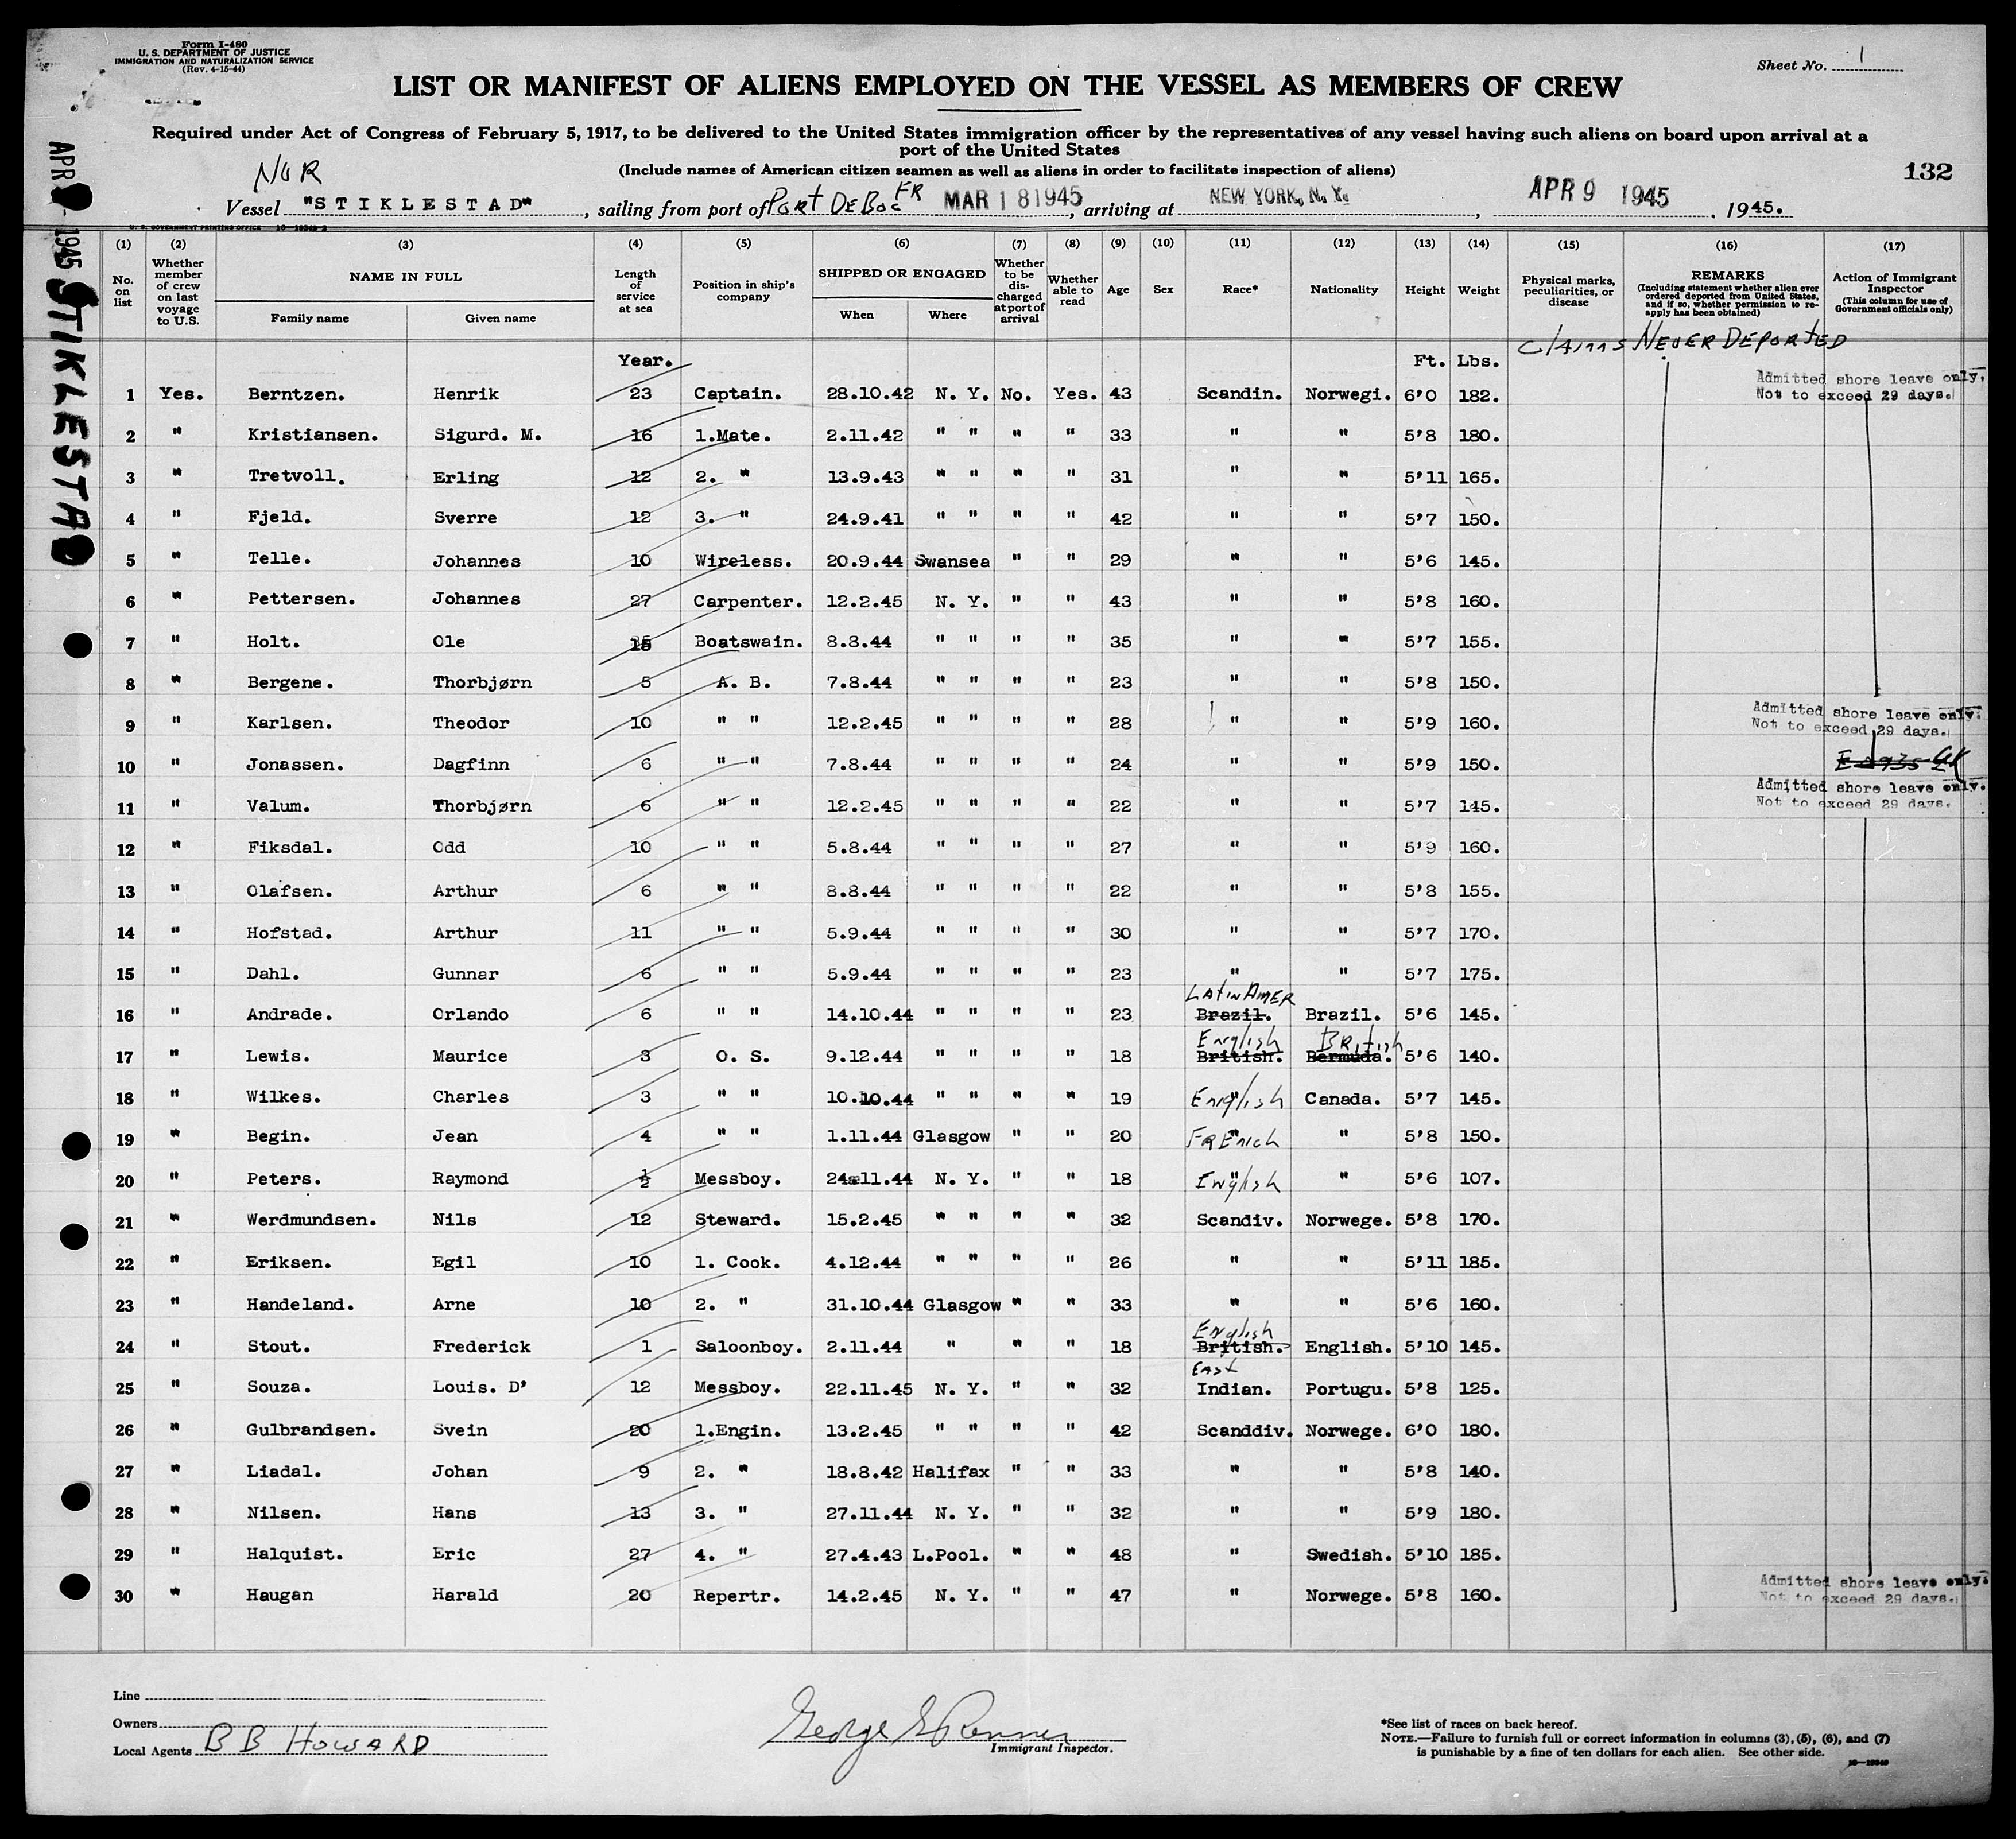 Form I-480
U. S. DEPARTMENT OF JUSTICE
IMMIGRATION AND NATURALIZATION SERVICE
(Rev. 4-15-44)
Sheet No. 1
LIST OR MANIFEST OF ALIENS EMPLOYED ON THE VESSEL AS MEMBERS OF CREW
Required under Act of Congress of February 5, 1917, to be delivered to the United States immigration officer by the representatives of any vessel having such aliens on board upon arrival at a
port of the United States
(Include names of American citizen seamen as well as aliens in order to facilitate inspection of aliens)
132
NOR
Vessel "STIKLESTAD", sailing from port of Port De Boc FR MAR 18 1945, arriving at NEW YORK, N. Y., APR 9 1945, 1945.
APR 9 1945 STIKLESTAD
(1) (2) (3) (4) (5) (6) (7) (8) (9) (10) (11) (12) (13) (14) (15) (16) (17)
No. on list
Whether member of crew on last voyage to U.S.
NAME IN FULL
Family name Given name
Length of service at sea
Position in ship's company
SHIPPED OR ENGAGED
When Where
Whether to be discharged at port of arrival
Whether able to read
Age
Sex
Race*
Nationality
Height
Weight
Physical marks, peculiarities, or disease
REMARKS
(Including statement whether alien ever ordered deported from United States, and if so, whether permission to reapply has been obtained)
Action of Immigrant Inspector
(This column for use of Government officials only)
Claims Never Deported
Year. Ft. Lbs.
Admitted shore leave only.
Not to exceed 29 days.
1 Yes. Berntzen. Henrik 23 Captain. 28.10.42 N. Y. No. Yes. 43 Scandin. Norwegi. 6'0 182.
2 " Kristiansen. Sigurd. M. 16 1.Mate. 2.11.42 " " " " 33 " " 5'8 180.
3 " Tretvoll. Erling 12 2. " 13.9.43 " " " " 31 " " 5'11 165.
4 " Fjeld. Sverre 12 3. " 24.9.41 " " " " 42 " " 5'7 150.
5 " Telle. Johannes 10 Wireless. 20.9.44 Swansea " " 29 " " 5'6 145.
6 " Pettersen. Johannes 27 Carpenter. 12.2.45 N. Y. " " 43 " " 5'8 160.
7 " Holt. Ole 15 Boatswain. 8.8.44 " " " " 35 " " 5'7 155.
8 " Bergene. Thorbjørn 5 A. B. 7.8.44 " " " " 23 " " 5'8 150.
9 " Karlsen. Theodor 10 " " 12.2.45 " " " " 28 " " 5'9 160.
Admitted shore leave only.
Not to exceed 29 days.
10 " Jonassen. Dagfinn 6 " " 7.8.44 " " " " 24 " " 5'9 150.
11 " Valum. Thorbjørn 6 " " 12.2.45 " " " " 22 " " 5'7 145.
Admitted shore leave only.
Not to exceed 29 days.
12 " Fiksdal. Odd 10 " " 5.8.44 " " " " 27 " " 5'9 160.
13 " Olafsen. Arthur 6 " " 8.8.44 " " " " 22 " " 5'8 155.
14 " Hofstad. Arthur 11 " " 5.9.44 " " " " 30 " " 5'7 170.
15 " Dahl. Gunnar 6 " " 5.9.44 " " " " 23 " " 5'7 175.
Latin Amer
16 " Andrade. Orlando 6 " " 14.10.44 " " " " 23 Brazil. Brazil. 5'6 145.
English British
17 " Lewis. Maurice 3 O. S. 9.12.44 " " " " 18 British. Bermuda. 5'6 140.
18 " Wilkes. Charles 3 " " 10.10.44 " " " " 19 English Canada. 5'7 145.
19 " Begin. Jean 4 " " 1.11.44 Glasgow " " 20 French " 5'8 150.
20 " Peters. Raymond ½ Messboy. 24.11.44 N. Y. " " 18 English " 5'6 107.
21 " Werdmundsen. Nils 12 Steward. 15.2.45 " " " " 32 Scandiv. Norwege. 5'8 170.
22 " Eriksen. Egil 10 1. Cook. 4.12.44 " " " " 26 " " 5'11 185.
23 " Handeland. Arne 10 2. " 31.10.44 Glasgow " " 33 " " 5'6 160.
English
24 " Stout. Frederick 1 Saloonboy. 2.11.44 " " " 18 British. English. 5'10 145.
East
25 " Souza. Louis. D' 12 Messboy. 22.11.45 N. Y. " " 32 Indian. Portugu. 5'8 125.
26 " Gulbrandsen. Svein 20 1.Engin. 13.2.45 " " " " 42 Scanddiv. Norwege. 6'0 180.
27 " Liadal. Johan 9 2. " 18.8.42 Halifax " " 33 " " 5'8 140.
28 " Nilsen. Hans 13 3. " 27.11.44 N. Y. " " 32 " " 5'9 180.
29 " Halquist. Eric 27 4. " 27.4.43 L.Pool. " " 48 " Swedish. 5'10 185.
30 " Haugan Harald 20 Repertr. 14.2.45 N. Y. " " 47 " Norwege. 5'8 160.
Admitted shore leave only.
Not to exceed 29 days.
Line
Owners
Local Agents B B Howard
George
Immigrant Inspector.
*See list of races on back hereof.
NOTE.—Failure to furnish full or correct information in columns (3), (5), (6), and (7)
is punishable by a fine of ten dollars for each alien. See other side.